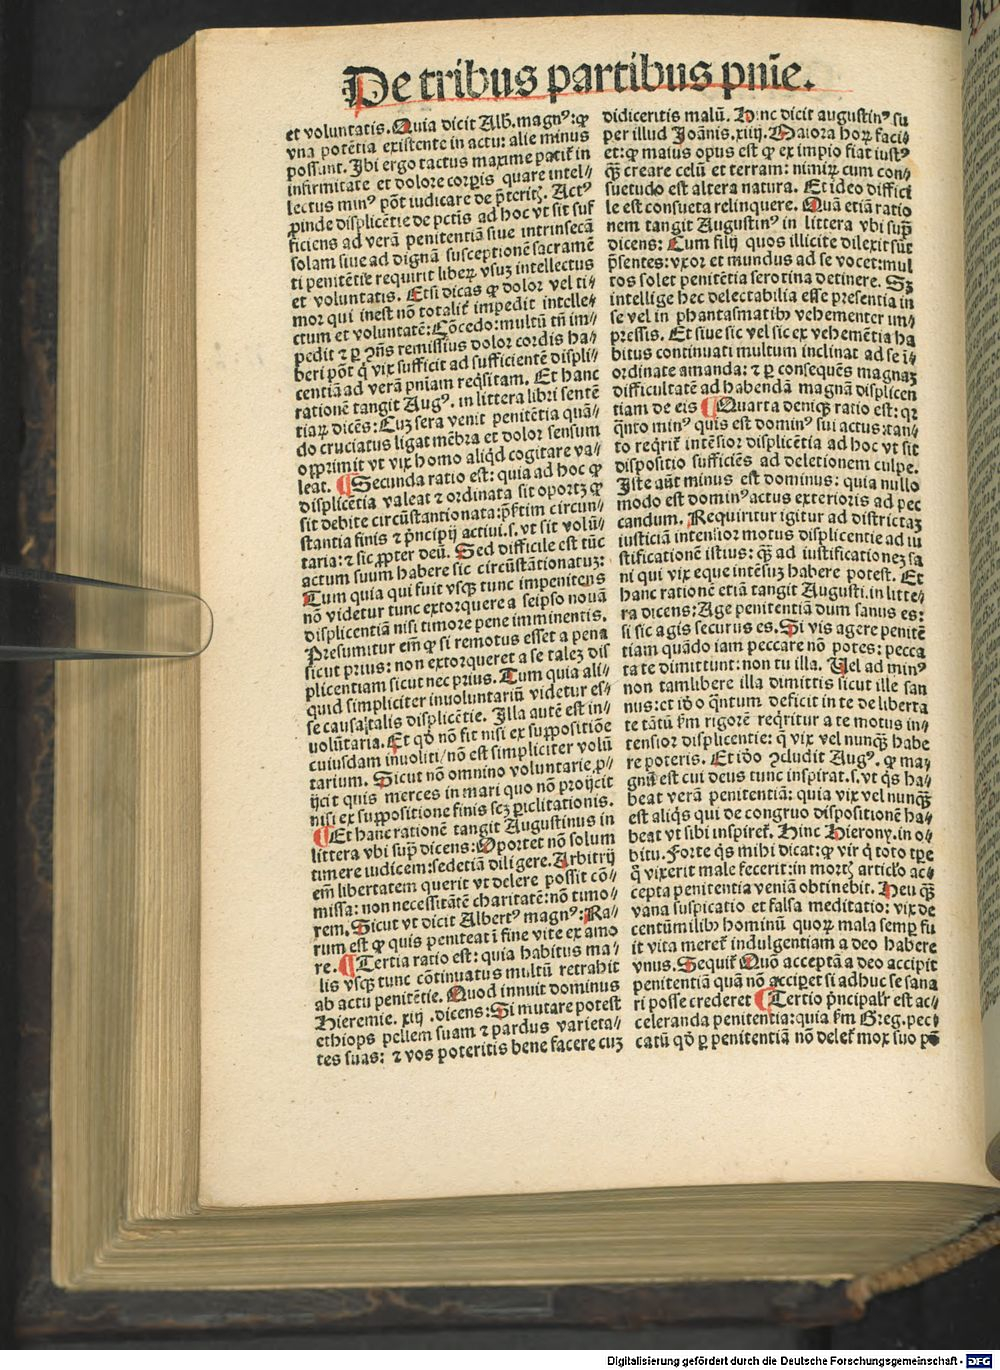 De tribus partibus pnīe.
et voluntatis. Quia dicit Alb. magnꝰ: ꝙ
vna potētia existente in actu: alie minus
possunt. Ibi ergo tactus maxime patit᷑ in
infirmitate et dolore corꝑis quare intel⸗
lectus minꝰ pōt iudicare de p̄terit᷑. Actꝰ
ꝓinde displicētie de pctīs ad hoc vt sit suf
ficiens ad verā penitentiā siue intrinsecā
solam siue ad dignā susceptionē sacramē
ti penitētie requirit liberꝝ vsuꝫ intellectus
et voluntatis. Etsi dicas ꝙ dolor vel ti⸗
mor qui inest nō totalit᷑ impedit intelle⸗
ctum et voluntatē: Cōcedo: multū tn̄ im⸗
pedit ⁊ ꝑ ꝯn̄s remissius dolor cordis ha⸗
beri pōt q̄ vix sufficit ad sufficientē displi⸗
centiā ad verā pniam req̄sitam. Et hanc
rationē tangit Augꝰ. in littera libri sentē
tiaꝝ dicēs: Cuꝫ sera venit penitētia quā⸗
do cruciatus ligat mēbra et dolor sensum
opprimit vt vix homo aliq̄d cogitare va⸗
leat. ¶ Secunda ratio est: quia ad hoc ꝙ
displicētia valeat ⁊ ordinata sit oportꝫ ꝙ
sit debite circūstantionata: p̄sertim circun⸗
stantia finis ⁊ p̄ncipij actiui.s. vt sit volū⸗
taria: ⁊ sic ꝓpter deū. Sed difficile est tūc
actum suum habere sic circūstātionatuꝫ:
Tum quia qui fuit vsqꝫ tunc impenitens
nō videtur tunc extorquere a seipso nouā
displicentiā nisi timore pene imminentis.
Presumitur em̄ ꝙ si remotus esset a pena
sicut prius: non extorqueret a se taleꝫ dis
plicentiam sicut nec prius. Tum quia ali⸗
quid simpliciter inuoluntariū videtur es⸗
se causa talis displicētie. Illa autē est in⸗
volūtaria. Et qd̄ nō fit nisi ex suppositiōe
cuiusdam inuoliti/ nō est simpliciter volū
tarium. Sicut nō omnino voluntarie ꝓ⸗
ijcit quis merces in mari quo nō proijcit
nisi ex suppositione finis scꝫ ꝑiclitationis.
¶ Et hanc rationē tangit Augustinus in
littera vbi supͣ dicens: Oportet nō solum
timere iudicem: sed etiā diligere. Arbitrij
em̄ libertatem querit vt delere possit cō⸗
missa: non necessitātē charitatē: nō timo⸗
rem. Sicut vt dicit Albertꝰ magnꝰ: Ra⸗
rum est ꝙ quis peniteat ī fine vite ex amo
re. ¶ Tertia ratio est: quia habitus ma⸗
lis vsqꝫ tunc cōtinuatus multū retrahit
ab actu penitētie. Quod innuit dominus
Hieremie. xiij. dicens: Si mutare potest
ethiops pellem suam ⁊ pardus varieta⸗
tes suas: ⁊ vos poteritis bene facere cuꝫ
didiceritis malū. Hinc dicit augustinꝰ su
per illud Joānis.xiiij. Maiora hoꝝ faci⸗
et: ꝙ maius opus est ꝙ ex impio fiat iustꝰ
q̄ꝫ creare celū et terram: nimiꝝ cum con⸗
suetudo est altera natura. Et ideo diffici
le est consueta relinquere. Quā etiā ratio
nem tangit Augustinꝰ in littera vbi supͣ
dicens: Cum filij quos illicite dilexit sūt
p̄sentes: vxor et mundus ad se vocet: mul
tos solet penitētia serotina detinere. Sꝫ
intellige hec delectabilia esse presentia in
se vel in phantasmatibꝰ vehementer im⸗
pressis. Et siue sic vel sic ex vehemētia ha
bitus continuati multum inclinat ad se ī⸗
ordinate amanda: ⁊ ꝑ consequēs magnaꝫ
difficultatē ad habendā magnā displicen
tiam de eis ¶ Quarta deniqꝫ ratio est: qꝛ
q̄nto minꝰ quis est dominꝰ sui actus: tan⸗
to reqrit᷑ intēsior displicētia ad hoc vt sit
dispositio sufficiēs ad deletionem culpe.
Iste aūt minus est dominus: quia nullo
modo est dominꝰ actus exterioris ad pec
candum. Requiritur igitur ad districtaꝫ
iusticiā intensior motus displicentie ad iu
stificationē istius: q̄ꝫ ad iustificationeꝫ sa
ni qui vix eque intēsuꝫ habere potest. Et
hanc rationē etiā tangit Augusti. in litte⸗
ra dicens: Age penitentiā dum sanus es:
si sic agis securus es. Si vis agere penitē
tiam quādo iam peccare nō potes: pecca
ta te dimittunt: non tu illa. Vel ad minꝰ
non tam libere illa dimittis sicut ille san
nus: et iō q̄ntum deficit in te de liberta
te tātū ẜm rigorē reqritur a te motus in⸗
tensior displicentie: q̄ vix vel nunq̄ꝫ habe
re poteris. Et iō ꝯcludit Augꝰ. ꝙ ma⸗
gnū est cui deus tunc inspirat.s. vt qs ha⸗
beat verā penitentiā: quia vix vel nunq̄ꝫ
est aliqs qui de congruo dispositionē ha⸗
beat vt sibi inspiret᷑. Hinc Hierony. in o⸗
bitu. Forte qs mihi dicat: ꝙ vir q̄ toto tꝑe
q̄ vixerit male fecerit: in mortꝭ articło ac⸗
cepta penitentia veniā obtinebit. Heu q̄ꝫ
vana suspicatio et falsa meditatio: vix de
centū milibꝰ hominū quoꝝ mala semꝑ fu
it vita meret᷑ indulgentiam a deo habere
vnus. Sequit᷑ Quō acceptā a deo accipit
penitentiā quā nō acciꝑet si adhuc se sana
ri posse crederet ¶ Tertio p̄ncipalr̄ est ac⸗
celeranda penitentia: quia ẜm Greg. pec⸗
catū qd̄ ꝑ penitentiā nō delet᷑ mox suo pō
Digitalisierung gefördert durch die Deutsche Forschungsgemeinschaft - DFG